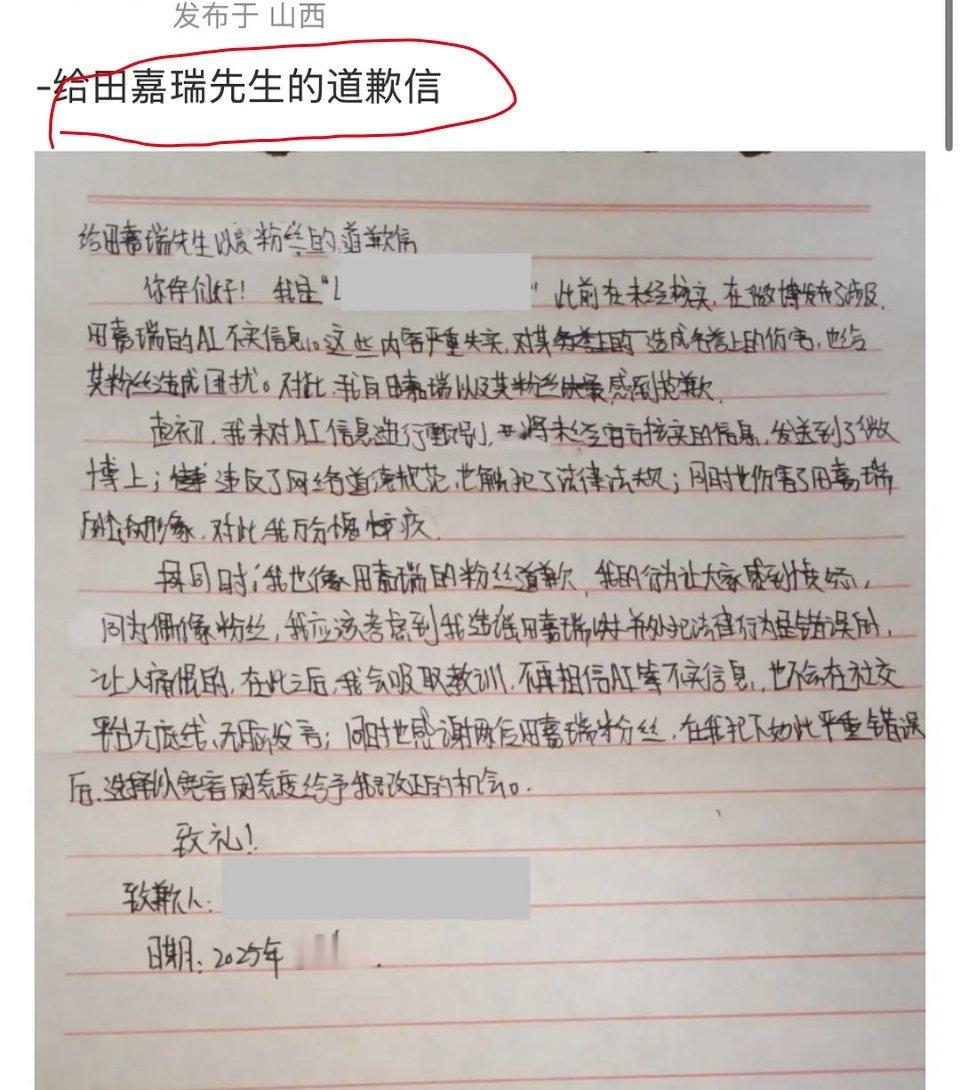 发布于 山西
-给田嘉瑞先生的道歉信
给田嘉瑞先生以及粉丝的道歉信
你们好！我是“L ” 此前在未经核实，在微博发布了涉及
田嘉瑞的AI不实信息。这些内容严重失实，对其造成名誉上的伤害，也给
其粉丝造成困扰。对此，我向田嘉瑞以及其粉丝感到抱歉。
起初，我未对AI信息进行甄别，将未经官方核实的信息，发送到了微
博上；违反了网络道德规范，也触犯了法律法规；同时也伤害了田嘉瑞
的形象，对此我万分愧疚。
与此同时，我也像田嘉瑞的粉丝道歉，我的行为让大家感到愤怒，
同为偶像粉丝，我应该考虑到我造谣田嘉瑞法律行为是错误的，
让人痛恨的，在此之后，我会吸取教训，不再相信AI等不实信息，也不会在社交
平台无底线，无脑发言；同时也感谢网友田嘉瑞粉丝，在我犯下如此严重错误
后，选择以宽容的态度给予我改正的机会。
致礼！
致歉人：
日期：2025年